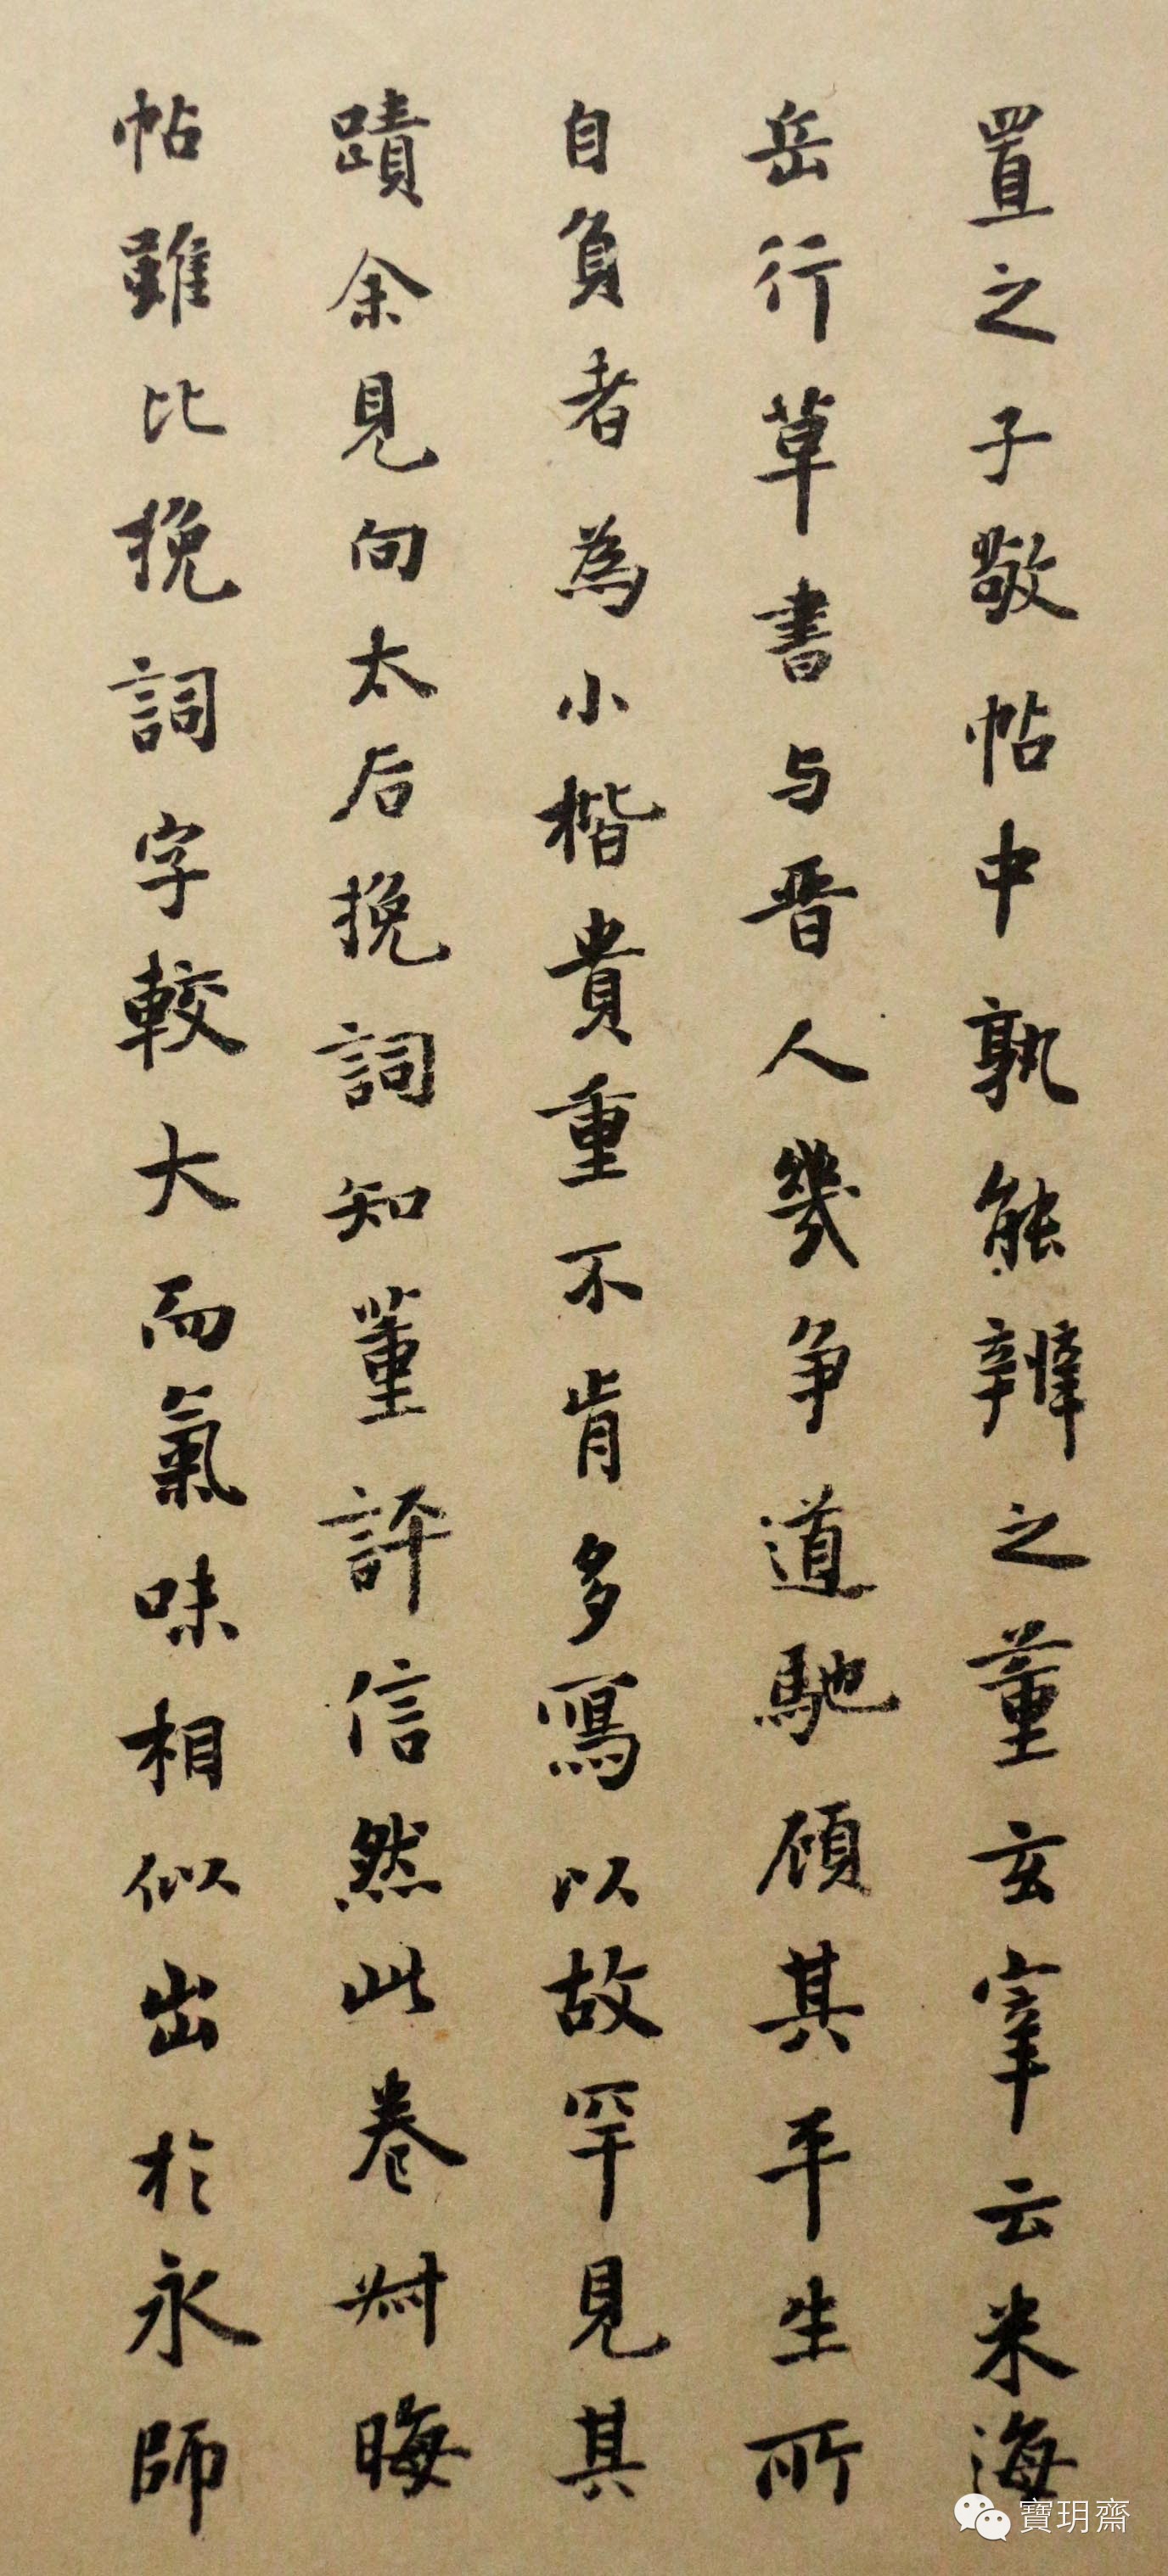 置之子敬帖中孰能辨之董玄宰云米海
岳行草書与晋人幾争道馳顧其平生所
自負者為小楷貴重不肯多寫以故罕見其
蹟余見向太后挽詞知董評信然此卷州晦
帖雖比挽詞字較大而氣味相似出於永師
寶玥齋